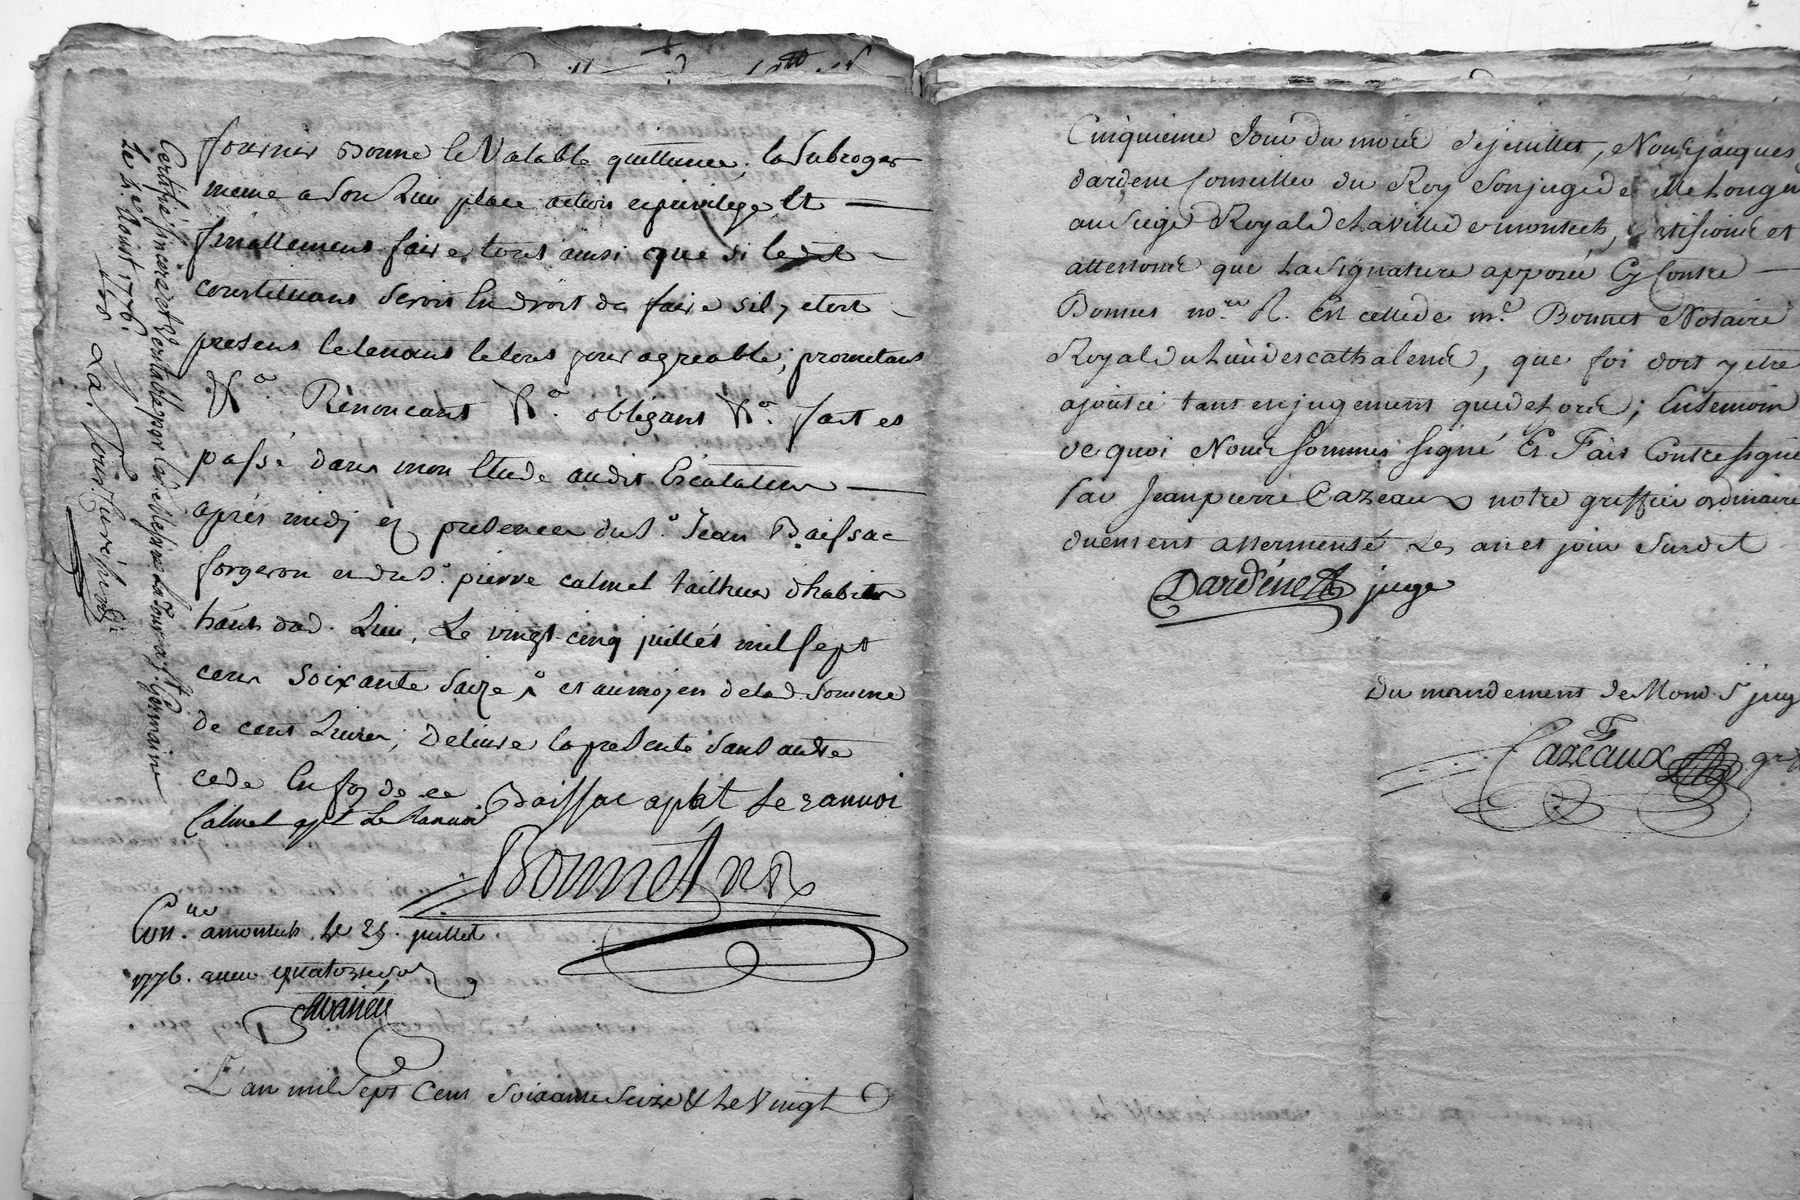 fournir Donne le Valable quittance, la Subroger
meme a Son Lieu place action eprivilege, Et
finallement faire tout ainsi que si ledit
constituant Seroit En droit de faire sil y etoit
present letenant letout pour agreable; prometant
Renoncant obligant fait et
passé dans mon Etude audit Escatalens
aprés midy en presence du S.r Jean Baissac
forgeron et du S.r pierre calmel tailheur dhabits
habitants dud. Lieu, Le vingt cinq juillet mil sept
cens soixante Saize, et aumoyen delad. Somme
de cent Livres, Delivre la presente Sans autre
cede En foy de ce Baissac aprt Le ranvoi
Calmel apt Le Ranvoi
Bonnet nre
Con.lle amontech le 25. juillet
1776. avec quatorze sols
L'an mil Sept Cens Soixante Seize & Le Vingt
Certifié sincere et Veritable par
Le 4 Aoust 1776.
Cinquieme Jour du mois dejuillet, Nous jacques
dardene Conseiller du Roy Son juge de
au siege Royal de La ville de montech, Certifions et
attestons que La Signature apposée Cy Contre
Bonnet no.re R. Est cellede m.e Bonnet Notaire
Royal du Lieu descathalens, que foi doit y etre
ajoutée tant enjugement quedehors; En temoin
de quoi Nous sommes signé Et Fait Contresigné
Par Jeanpierre Cazeaux notre greffier ordinaire
duement assermenté Les an et jour Susdit
Dardene juge
Du mandement de Mond. S.r juge
Cazeaux gr